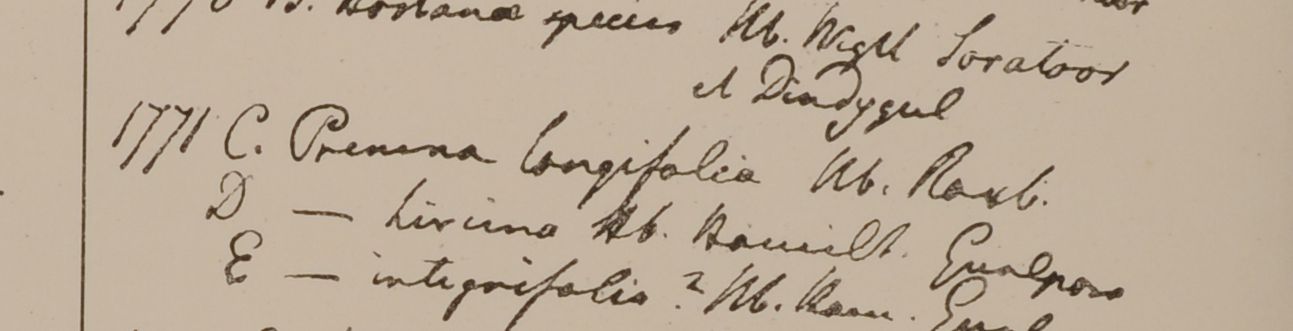 1770 B. species Hb. Wight Soratoor
et Dindygul
1771 C. Premna longifolia Hb. Roxb.
D — hircina Hb. Hamilt. Gualpara
E — integrifolia? Hb. Ham. Gual